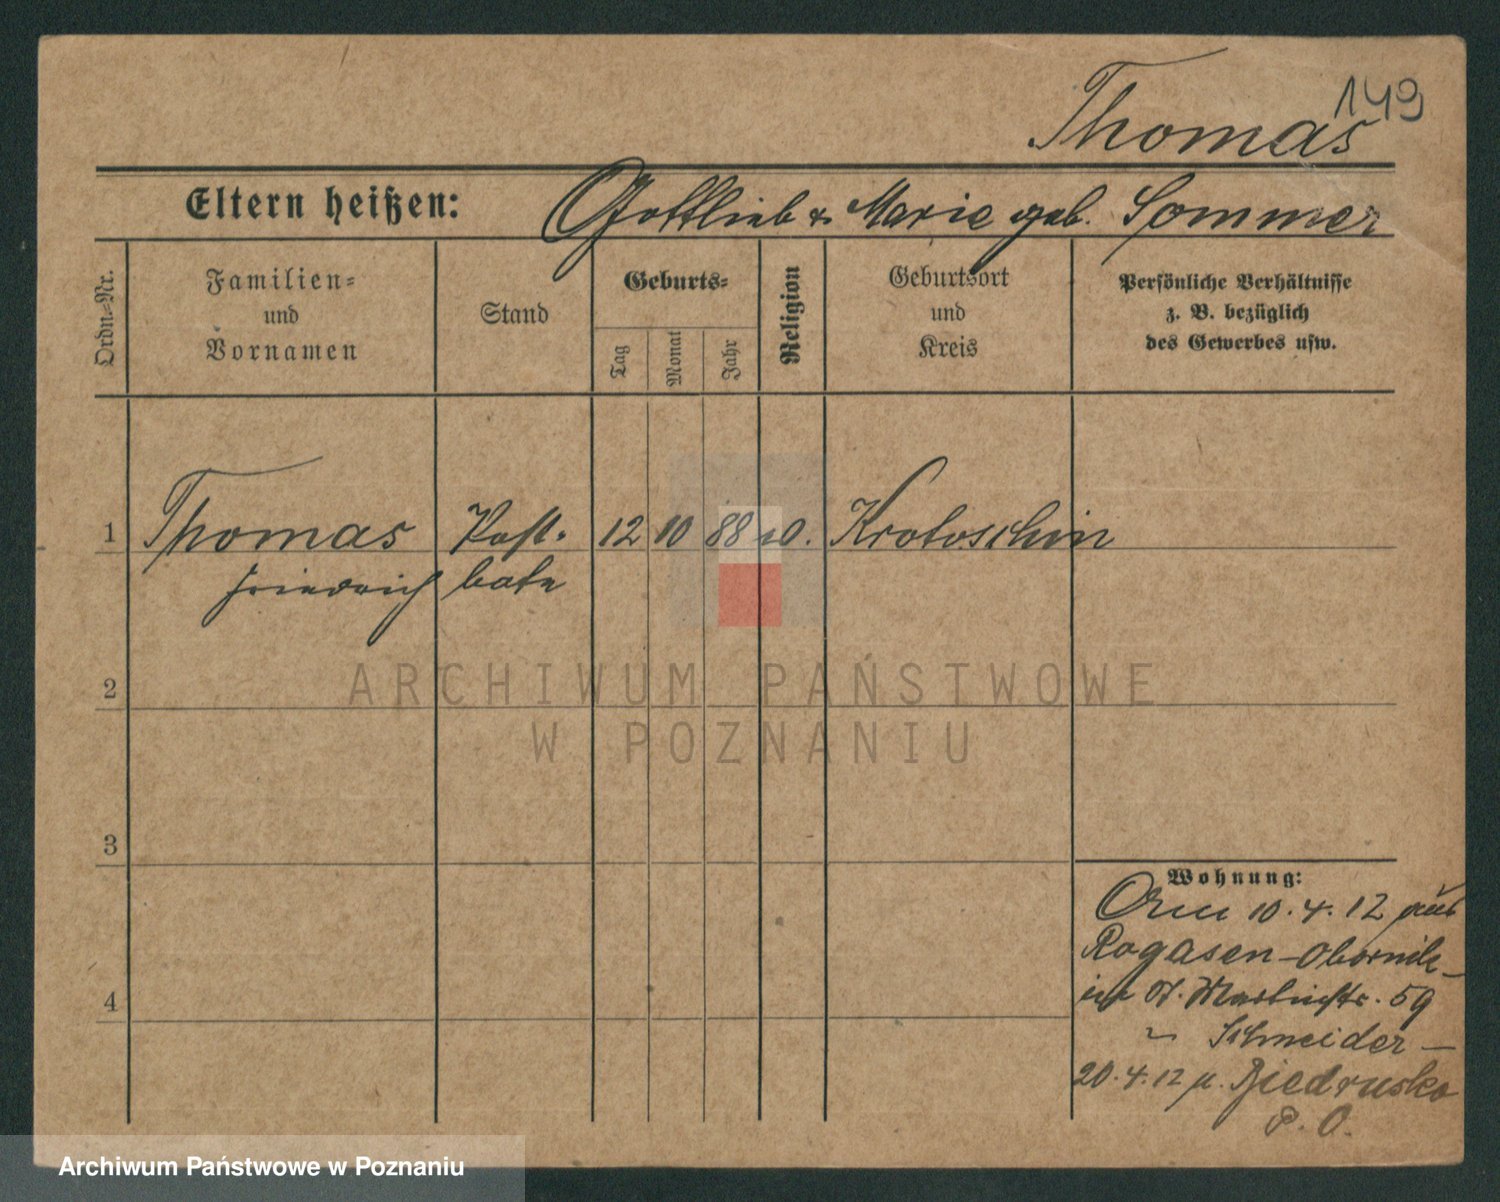 149
Thomas
Eltern heißen: Gottlieb & Marie geb. Sommer
Ordn.=Nr.
Familien=
und
Vornamen
Stand
Geburts=
Tag
Monat
Jahr
Religion
Geburtsort
und
Kreis
Persönliche Verhältnisse
z. B. bezüglich
des Gewerbes usw.
1 Thomas Post- 12 10 88 Krotoschin
Friedrich bote
2
3
4
Wohnung:
10.4.12 aus
Rogasen-Obornik
59
Schneider
20.4.12 Biedrusko
P. O.
ARCHIWUM PAŃSTWOWE
W POZNANIU
Archiwum Państwowe w Poznaniu